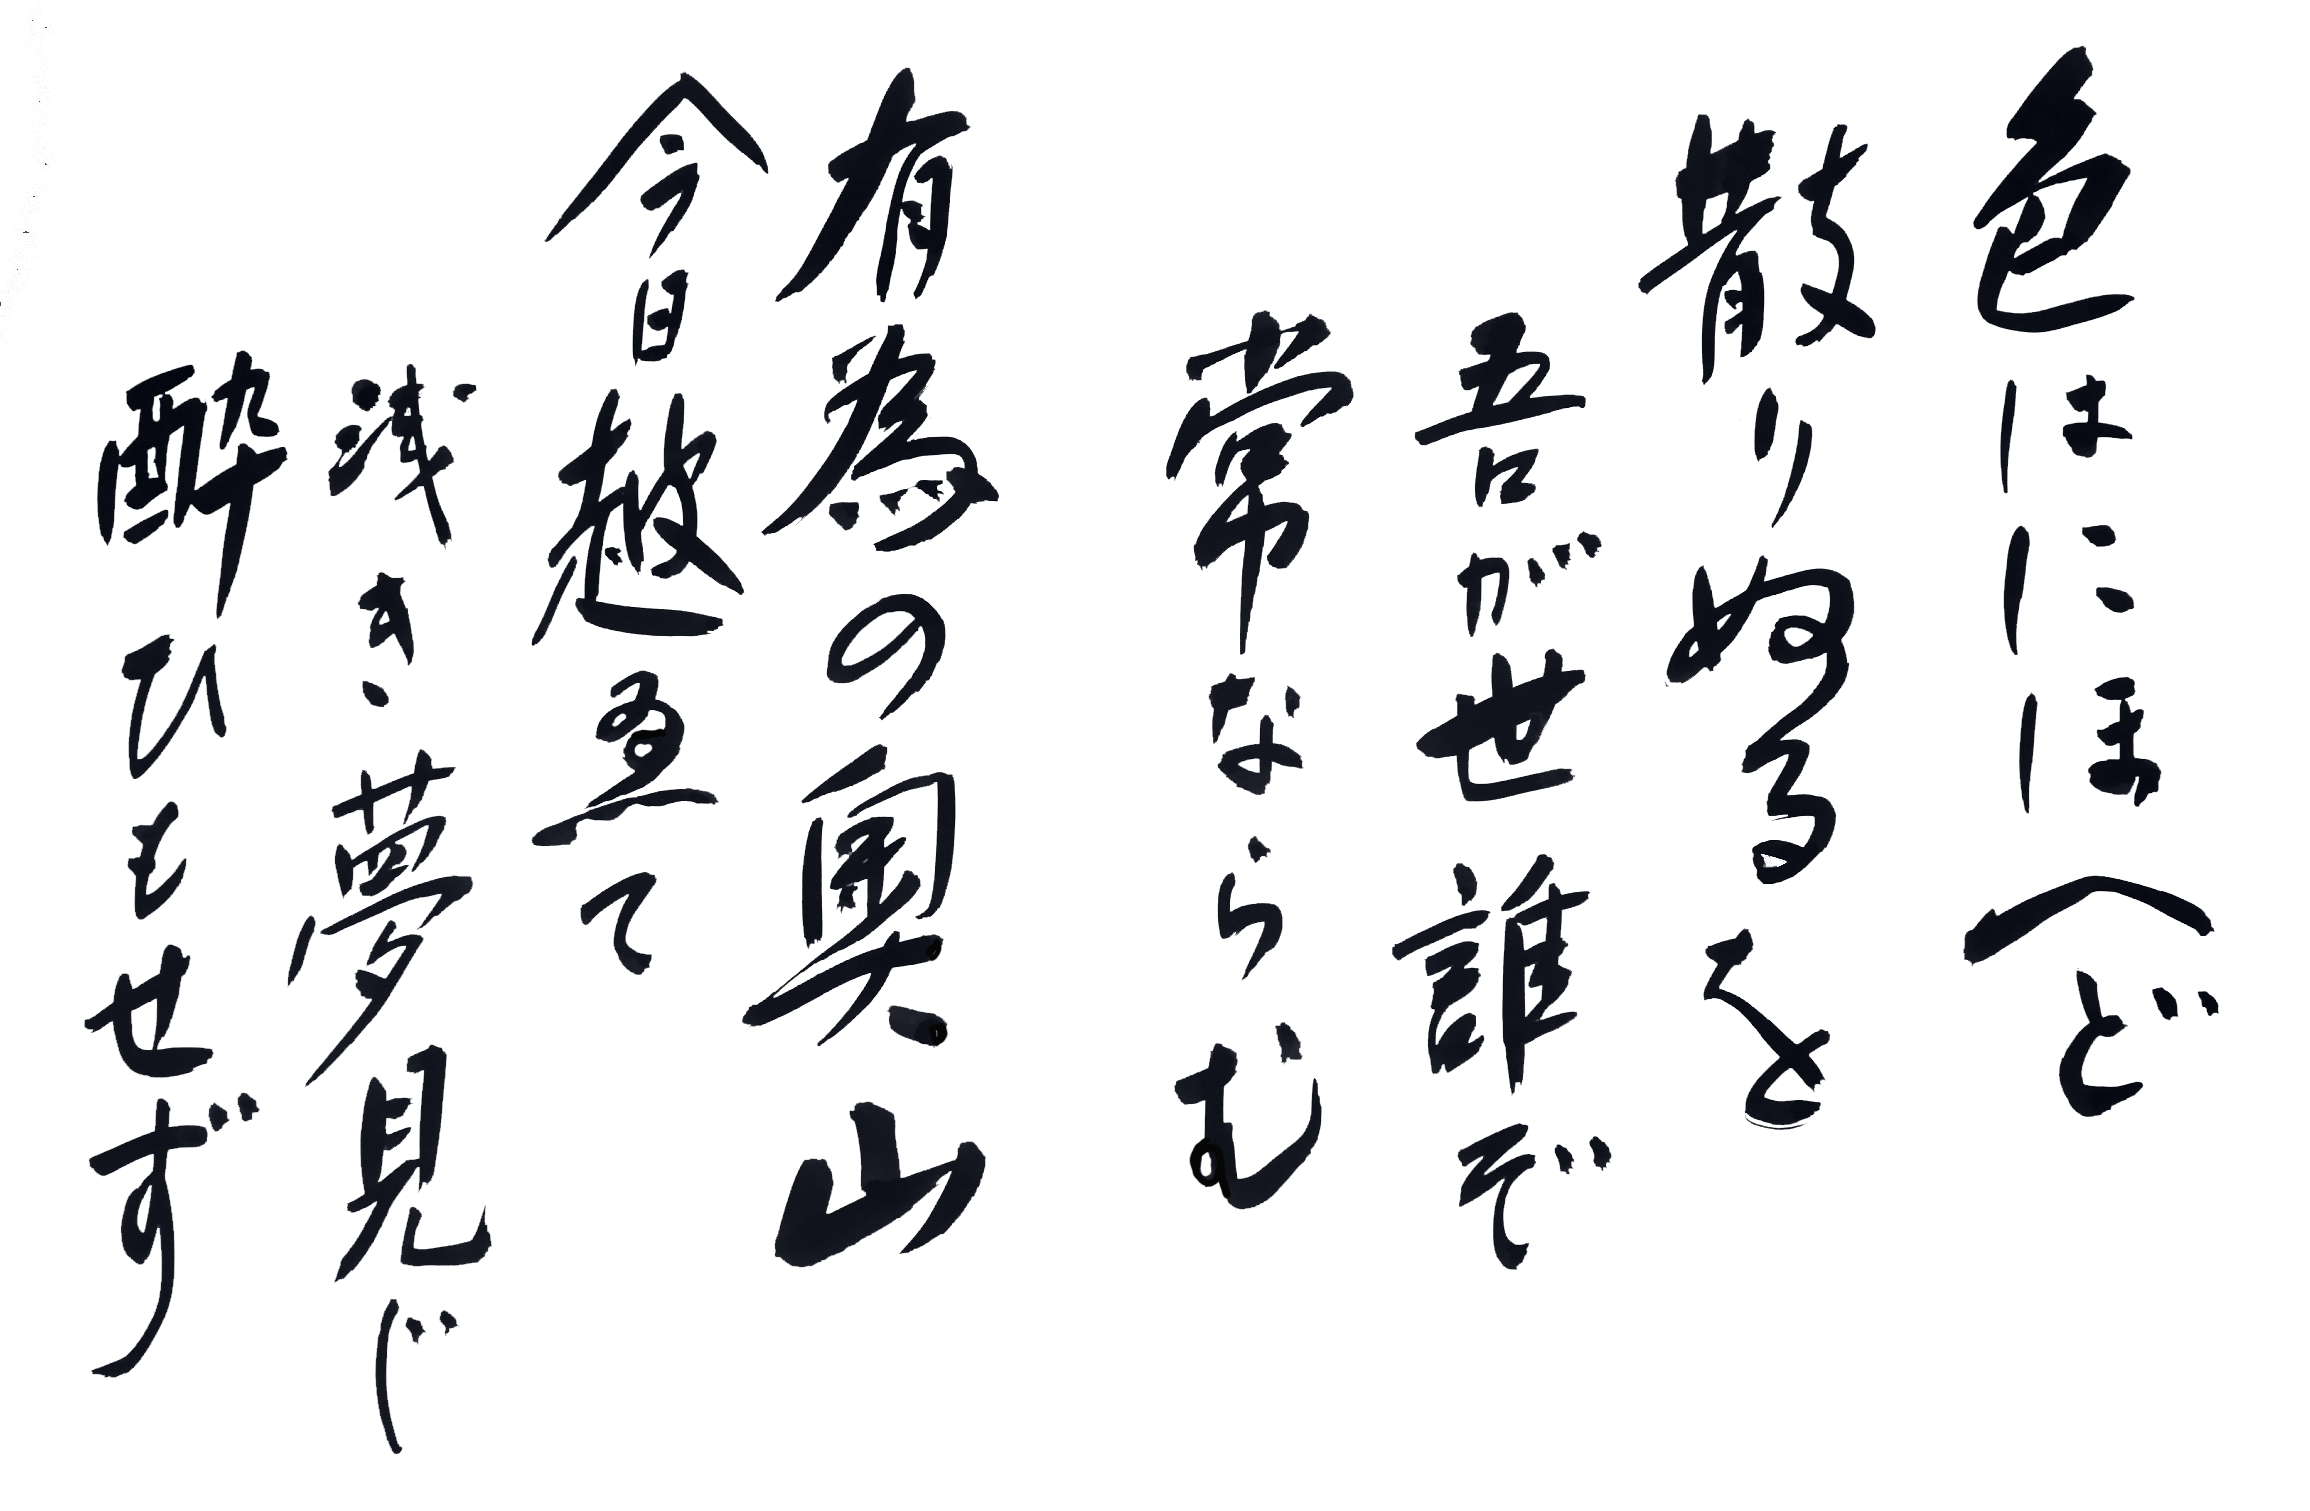 色はにほへど
散りぬるを
吾が世誰ぞ
常ならむ
有為の奥山
今日越ゑて
浅き夢見じ
酔ひもせず